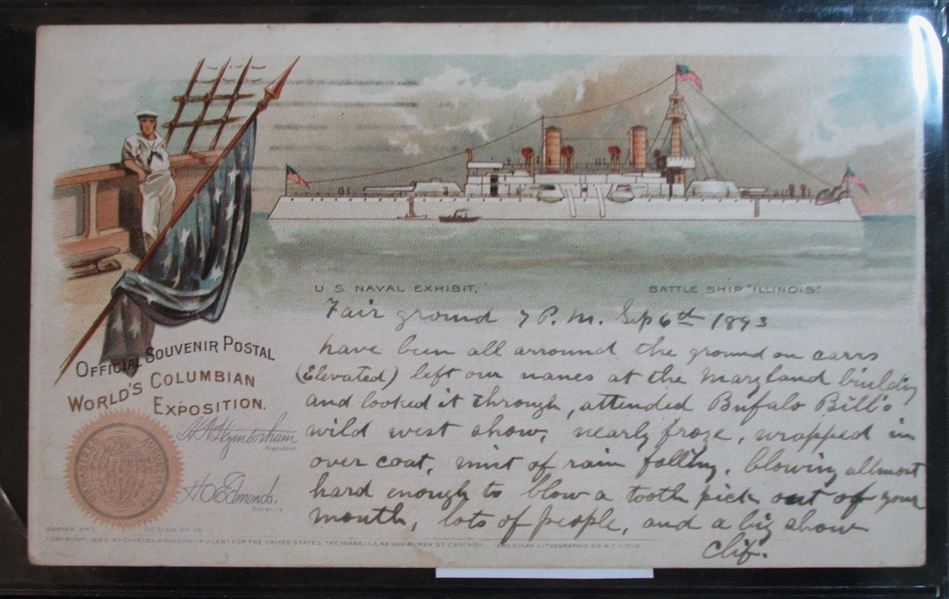 U. S. NAVAL EXHIBIT.
BATTLE SHIP "ILLINOIS".
Fair ground 7 P. M. Sep 6th 1893
have been all arround the ground on carrs
(Elevated) left our names at the Maryland building
and looked it through, attended Bufalo Bill's
wild west show, nearly froze, wrapped in
over coat, mist of rain falling, blowing allmost
hard enough to blow a tooth pick out of your
mouth, lots of people, and a big show
Clif.
OFFICIAL SOUVENIR POSTAL
WORLD'S COLUMBIAN
EXPOSITION.
President
H O Edmonds.
Secretary
SERIES No 1. DESIGN No 10
COPYRIGHT, 1893 BY CHARLES W. GOLDSMITH AGENT FOR THE UNITED STATES THE ISABELLA, VAN BUREN ST CHICAGO. AMERICAN LITHOGRAPHIC CO. N.Y. LITH.